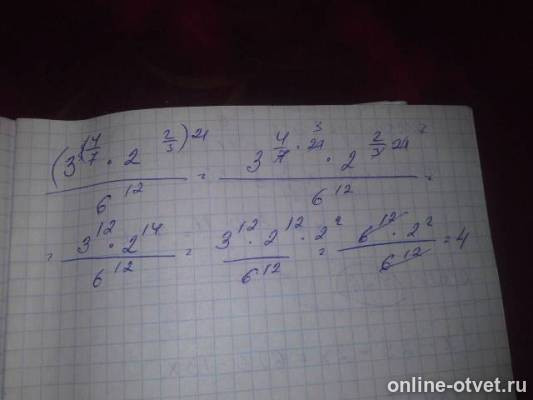 (3^{4/7} · 2^{2/3})^{21} / 6^{12} = 3^{4/7 · 21} · 2^{2/3 · 21} / 6^{12} =
= 3^{12} · 2^{14} / 6^{12} = 3^{12} · 2^{12} · 2^2 / 6^{12} = 6^{12} · 2^2 / 6^{12} = 4
online-otvet.ru